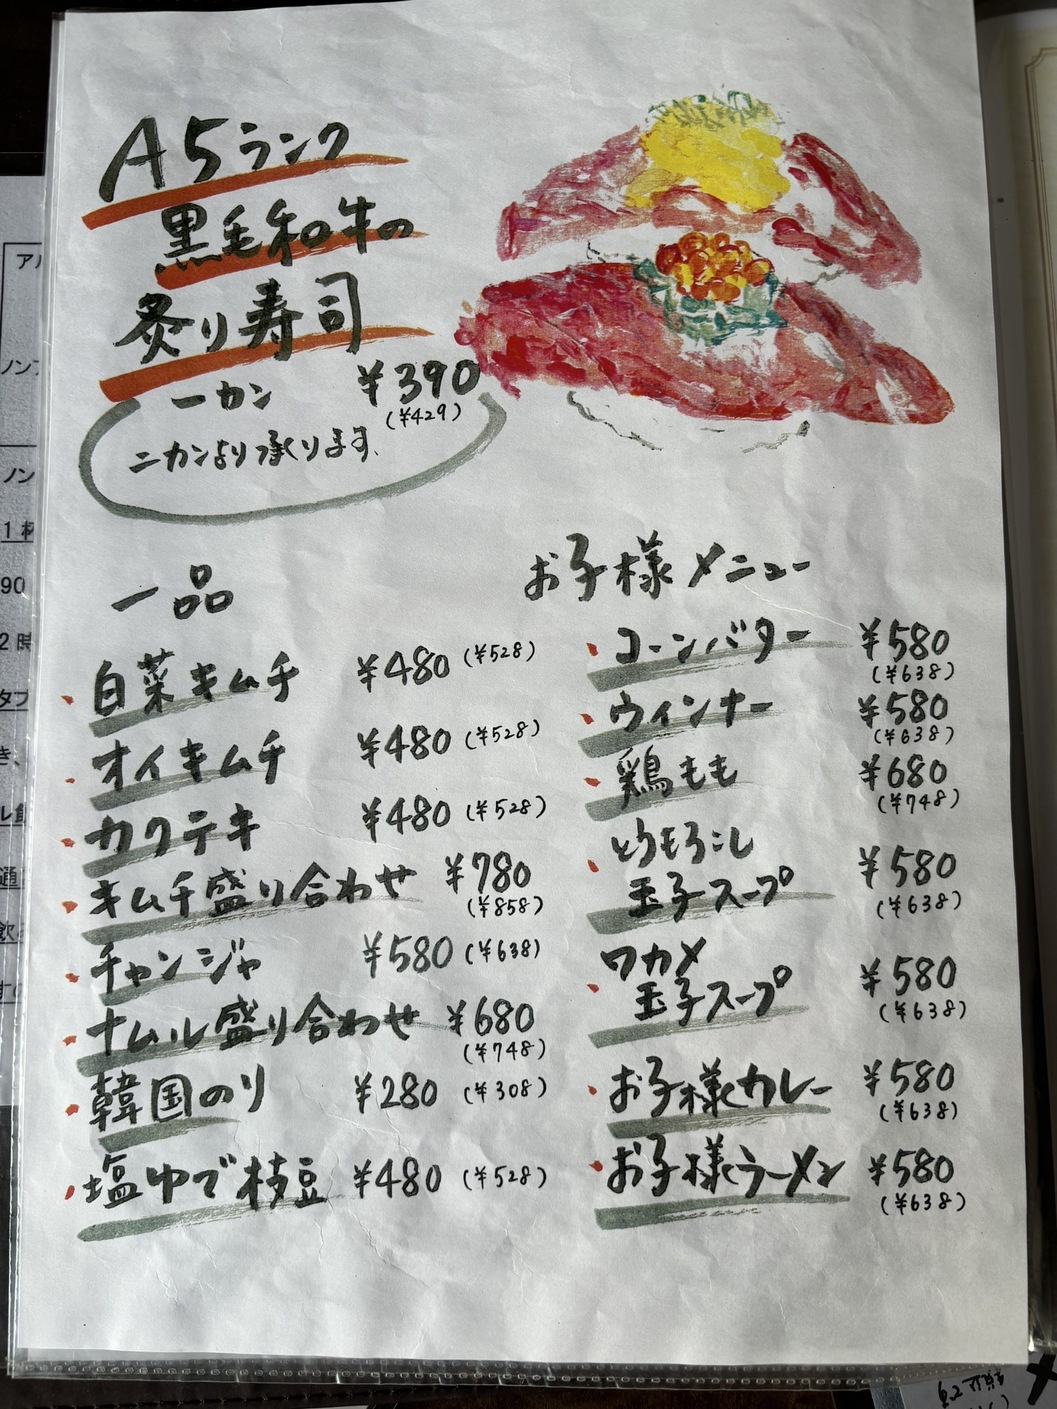 A5ランク
黒毛和牛の
炙り寿司
一カン ¥390
(¥429)
二カンより承ります。
一品
白菜キムチ ¥480 (¥528)
オイキムチ ¥480 (¥528)
カクテキ ¥480 (¥528)
キムチ盛り合わせ ¥780
(¥858)
チャンジャ ¥580 (¥638)
ナムル盛り合わせ ¥680
(¥748)
韓国のり ¥280 (¥308)
塩ゆで枝豆 ¥480 (¥528)
お子様メニュー
コーンバター ¥580
(¥638)
ウィンナー ¥580
(¥638)
鶏もも ¥680
(¥748)
とうもろこし
玉子スープ ¥580
(¥638)
ワカメ
玉子スープ ¥580
(¥638)
お子様カレー ¥580
(¥638)
お子様ラーメン ¥580
(¥638)
アル
ノン
1杯
90
2時
タブ